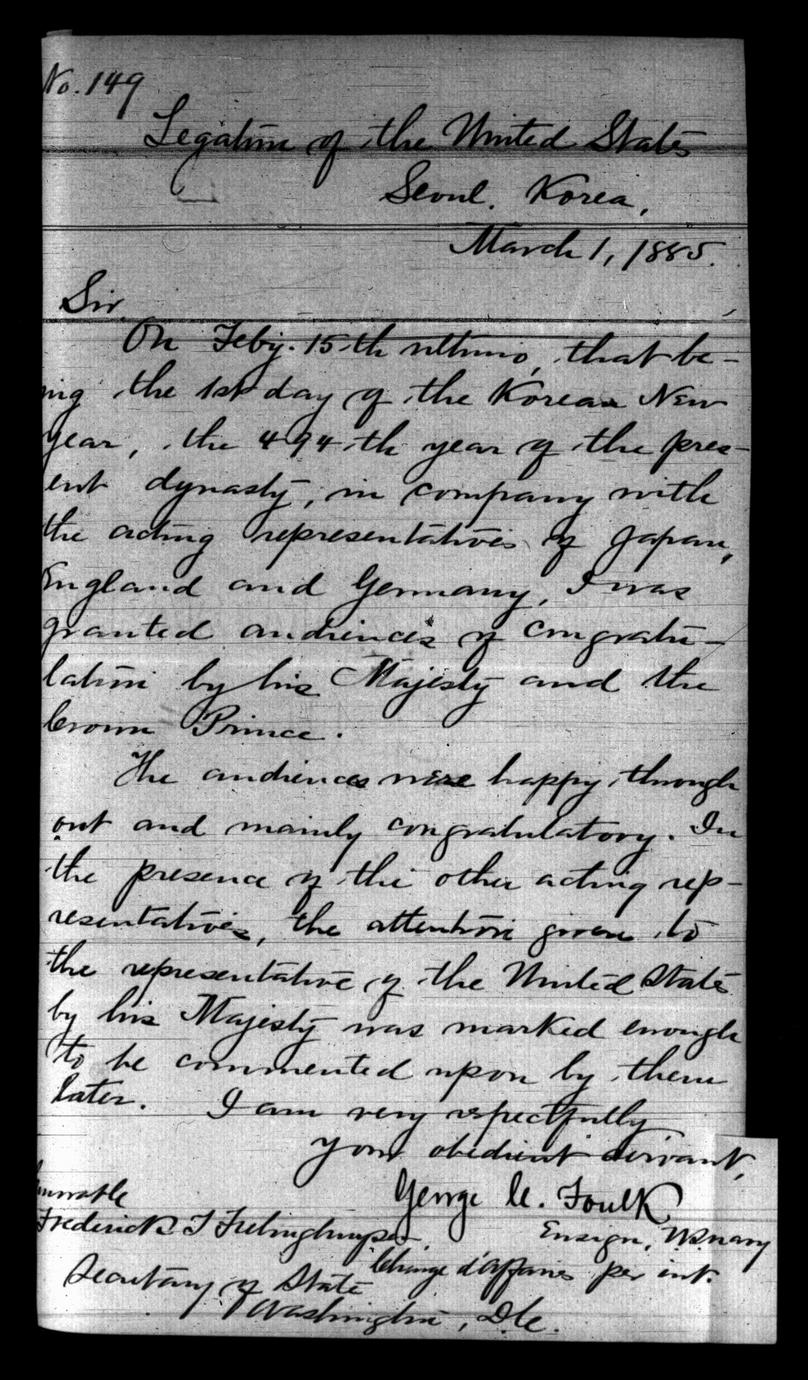 No. 149
Legation of the United States
Seoul. Korea,
March 1, 1885.
Sir,
On Feby. 15th ultimo, that be-
ing the 1st day of the Korean New
year, the 494th year of the pres-
ent dynasty, in company with
the acting representatives of Japan,
England and Germany, I was
granted audiences of congratu-
lation by his Majesty and the
Crown Prince.
The audiences were happy through
out and mainly congratulatory. In
the presence of the other acting rep-
resentatives, the attention given to
the representative of the United States
by his Majesty was marked enough
to be commented upon by them
later. I am very respectfully
your obedient servant,
George C. Foulk
Ensign, U.S. navy
Chargé d'affaires per int.
Honorable
Frederick T Frelinghuysen
Secretary of State
Washington, D.C.